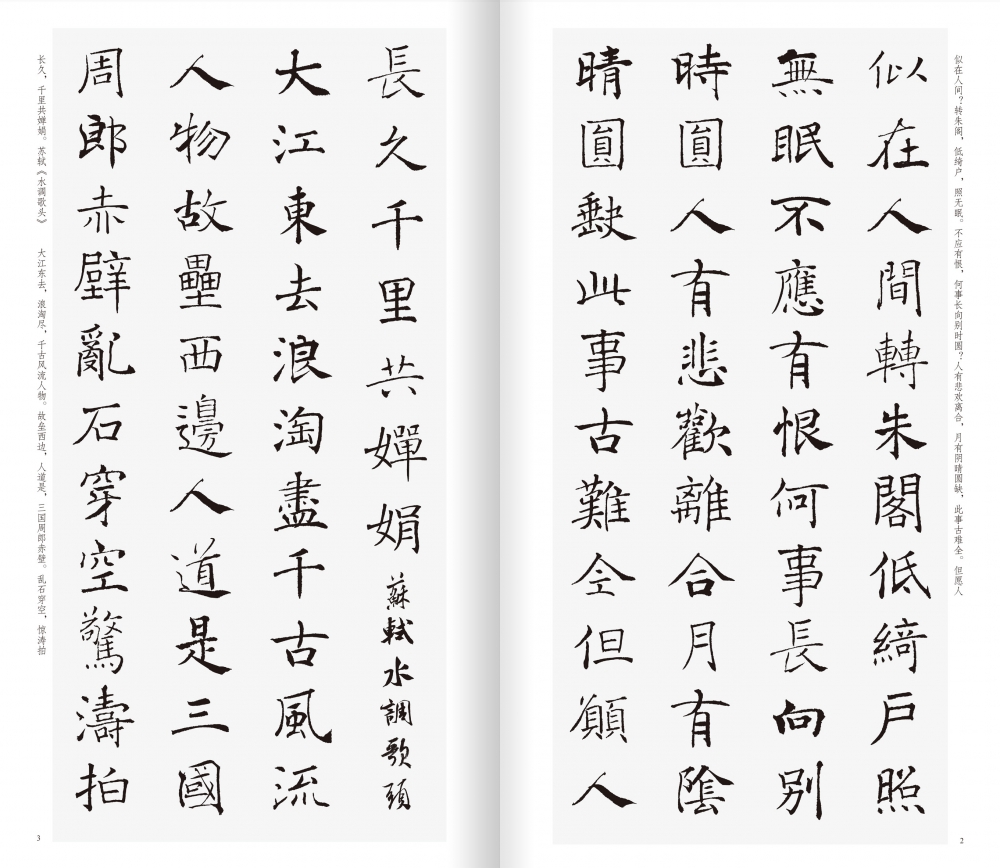 似在人间？转朱阁，低绮户，照无眠。不应有恨，何事长向别时圆？人有悲欢离合，月有阴晴圆缺，此事古难全。但愿人
似在人間轉朱閣低綺戶照
無眠不應有恨何事長向別
時圓人有悲歡離合月有陰
晴圓缺此事古難仝但願人
2
長久千里共嬋娟 蘇軾水調歌頭
大江東去浪淘盡千古風流
人物故壘西邊人道是三國
周郎赤壁亂石穿空驚濤拍
长久，千里共婵娟。苏轼《水调歌头》 大江东去，浪淘尽，千古风流人物。故垒西边，人道是，三国周郎赤壁。乱石穿空，惊涛拍
3